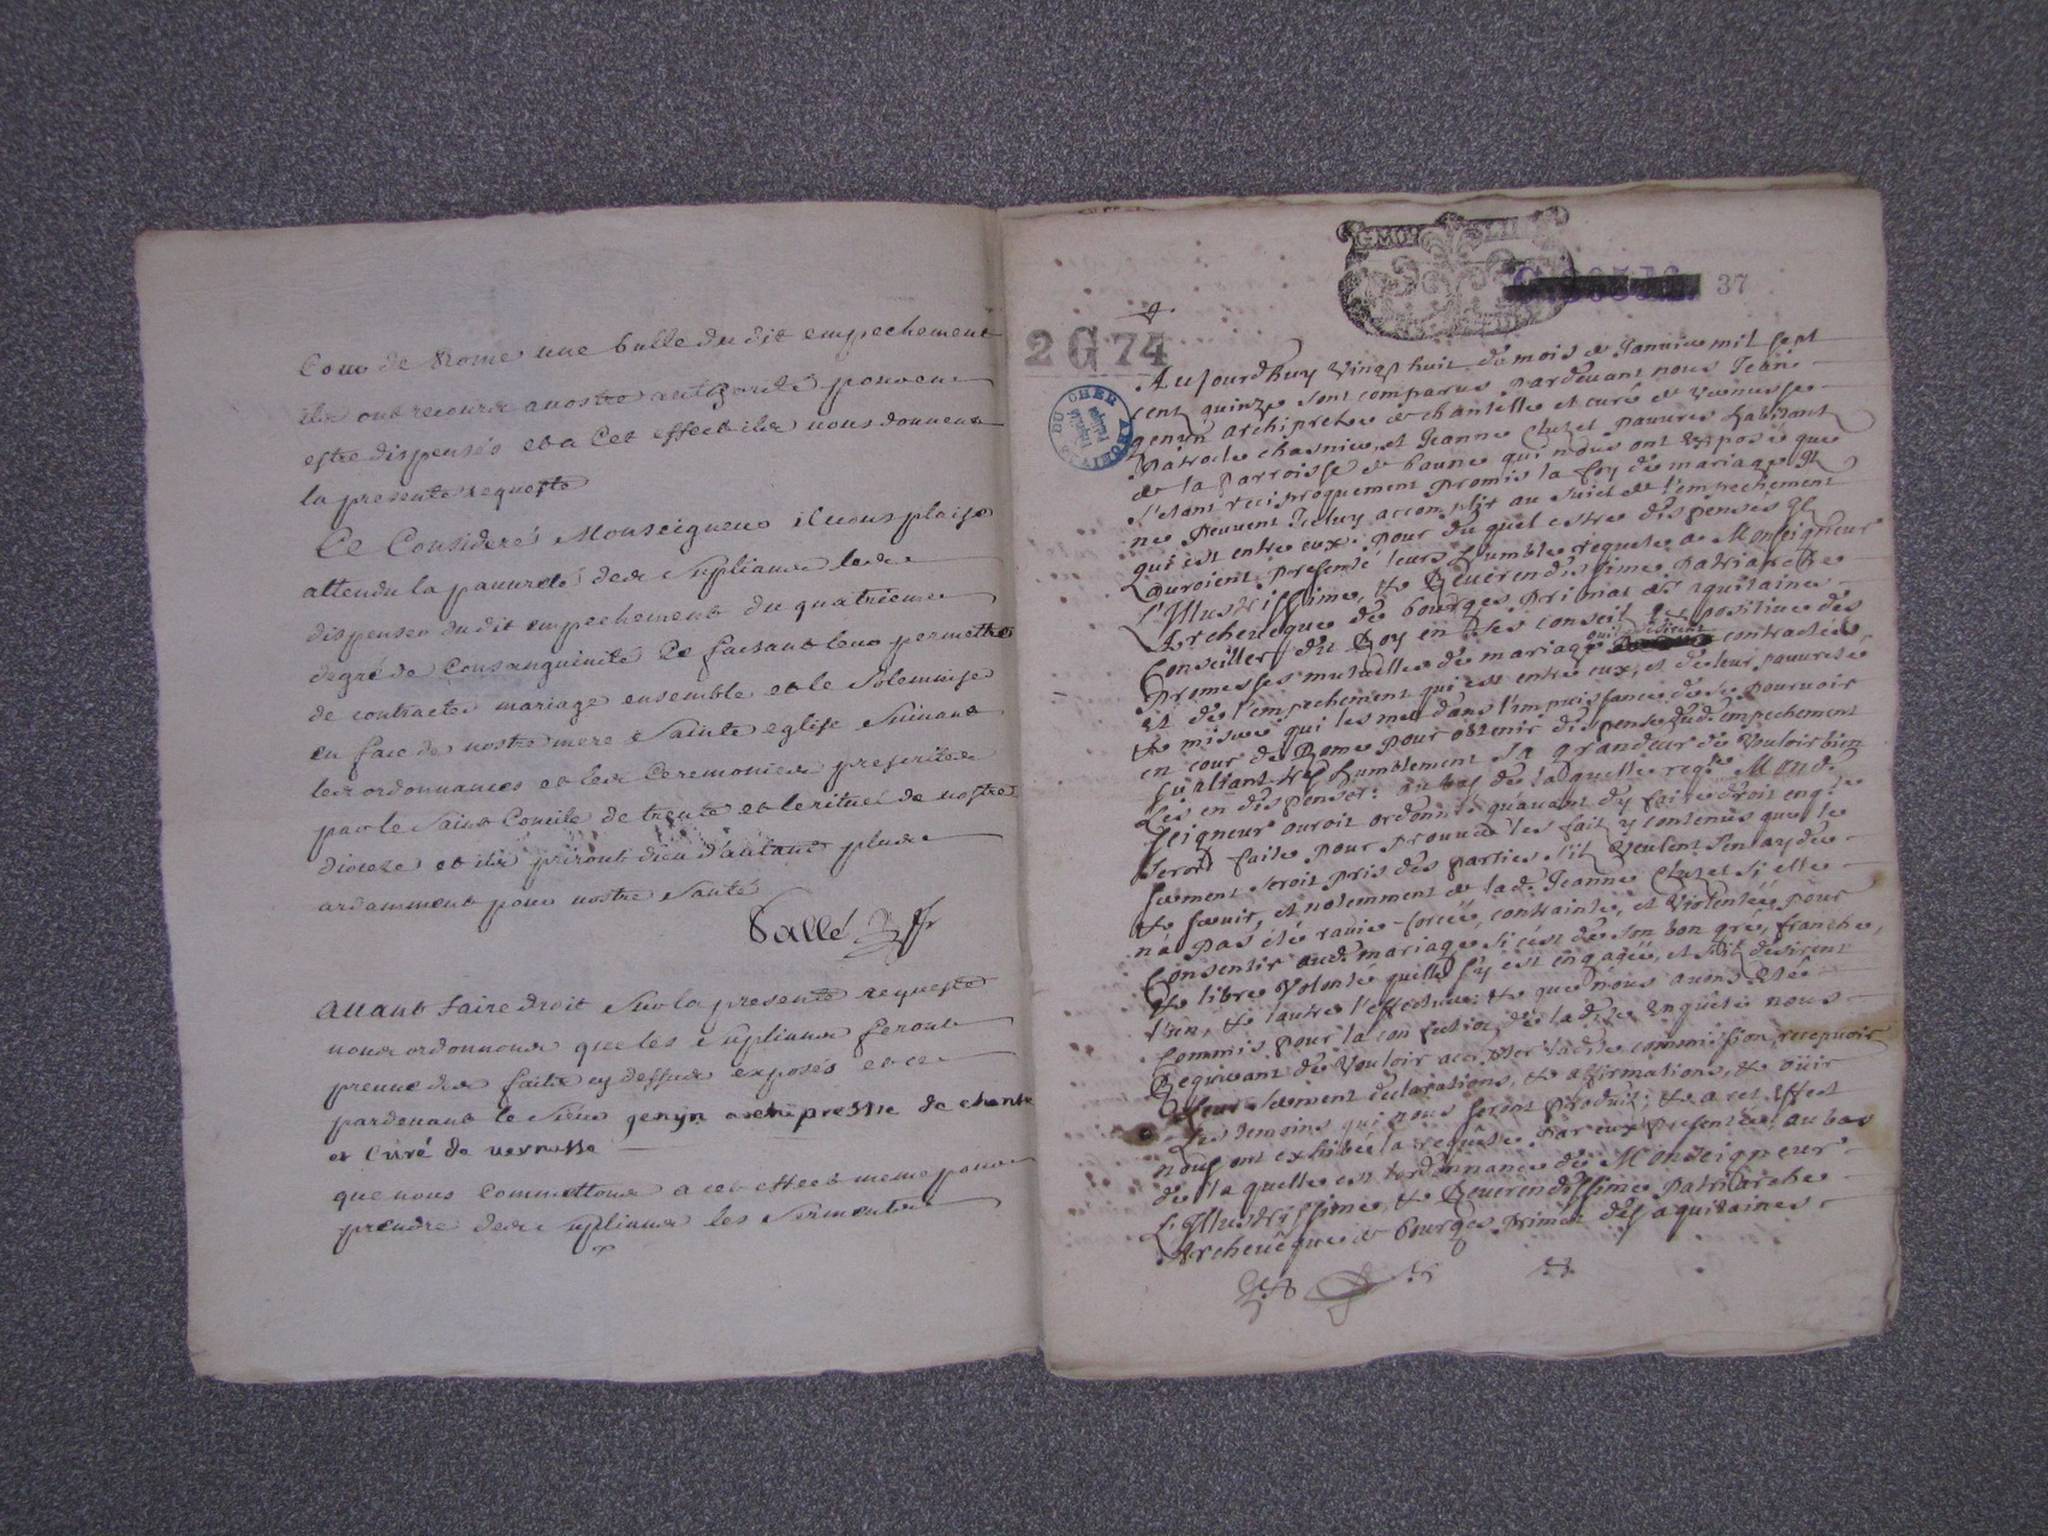 Cour de Rome une bulle du dit empechement
ils ont recours a vostre authorité pour en
estre dispensés et a Cet effect ils vous donnent
la presente requeste
Ce Consideré Monseigneur il vous plaise
attendu la pauureté des supliants les
dispenser du dit empechement du quatrieme
degré de Consanguinité Ce faisant leur permettre
de contracter mariage ensemble et le solemnise
en face de nostre mere Sainte eglise Suiuant
les ordonnances et les Ceremonies prescrites
par le Saint Concile de trente et le rituel de vostre
diocese et ils priront dieu d'autant plus
ardamment pour vostre Santé
Sallé
auant faire droit Sur la presente requeste
nous ordonnons que les supliants feront
preuue des faits cy dessus exposés et ce
pardeuant le Sieur genyn archiprestre de chante
et Curé de uernusse
que nous Commettons a cet effect meme pour
prendre des supliants les serments
37
2 G 74
ARCHIVES DU CHER
Aujourdhuy vingt huit du mois de Januier mil sept
cent quinze sont comparus pardeuant nous Jean
genyn archipretre de chantelle et curé de Vernusse
chasnier, et Jeanne Cluzet pauures habitant
de la parroisse de baune qui nous ont exposés que
s'etant reciproquement promis la foy de mariage Il
ne peuuent Iceluy accomplir au suiet de l'empechement
qui est entre eux. pour du quel estre dispensés Il
auroient presenté leurs humble requete a Monseigneur
L'Illustrissime, et Reuerendissime patriarche
Archeueque de bourges primat des aquitaines
Conseiller du Roy en ses conseil positiue des
promesses mutuelles de mariage qu'ils desirent contracter,
et de l'empechement qui est entre eux, et de leur pauureté
et misere qui les met dans l'impuissance de se pouruoir
en cour de Rome pour obtenir dispense dud. empechement
supliant tres humblement sa grandeur de Vouloir bien
Les en dispenser: au bas de laquelle reqte. Monde.
seigneur auroit ordonné qu'auant d'y faire droit enqte
seroit faite pour prouuer les fait y contenus que le
serment seroit pris des parties s'il veulent s'en ayder
et seruir, et notemment de lad. Jeanne Cluzet si elle
n'a pas été rauie - forcée, contrainte, et Violentée pour
Consentir aud. mariage si c'est de son bon gré, franche,
et libre Volonté quelle s'y est engagée, et s'ils desirent
l'un, et l'autre l'effectuer: et que nous auons etée
Commis pour la confection de ladite Enquête nous
Requierant de Vouloir accepter ladite commission, receuoir
leur serment declarations, et affirmations, et oüir
Les temoins qui nous seront produit; et a cet effet
nous ont exhibée la requête par eux presentée au bas
de la quelle est l'ordonnance de Monseigneur
L'Illustrissime, et Reuerendissime patriarche
Archeueque de bourges primat des aquitaines